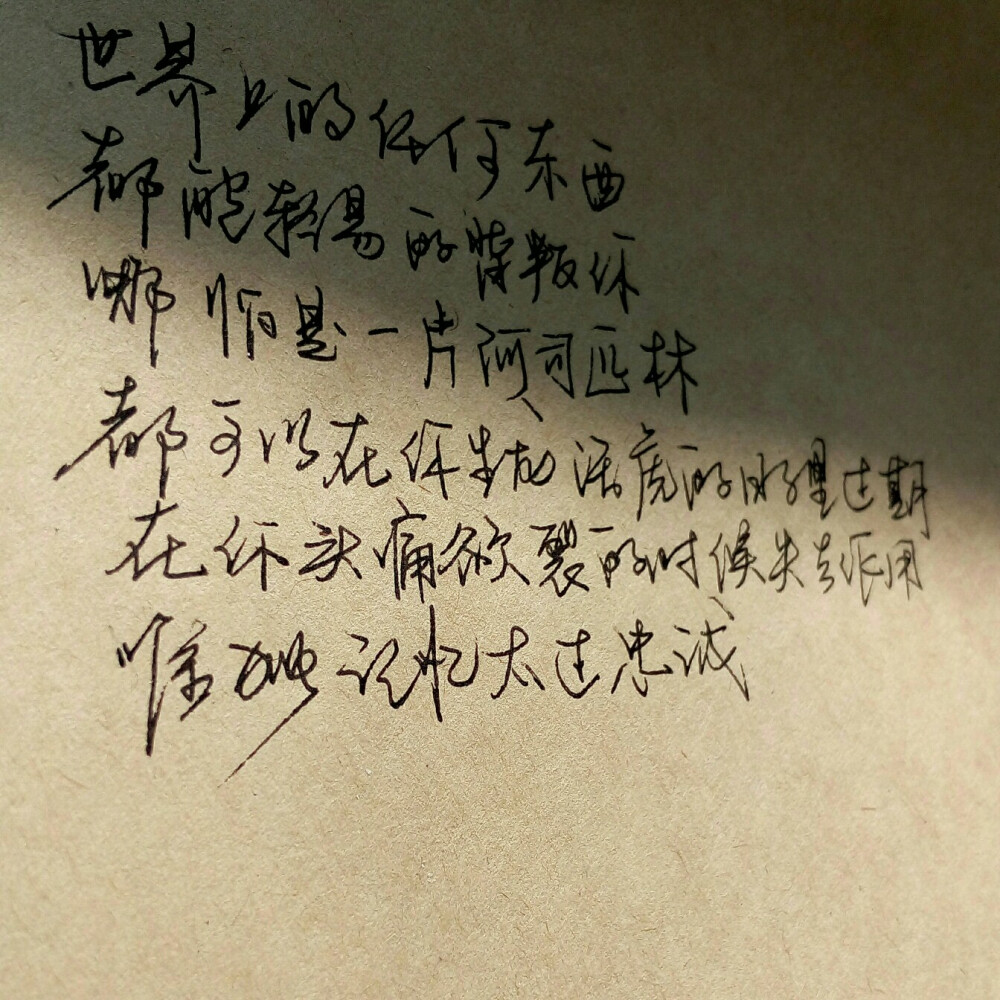 世界上的任何东西
都能轻易的背叛你
哪怕是一片阿司匹林
都可以在你生龙活虎的日子里过期
在你头痛欲裂的时候失去作用
唯独记忆太过忠诚